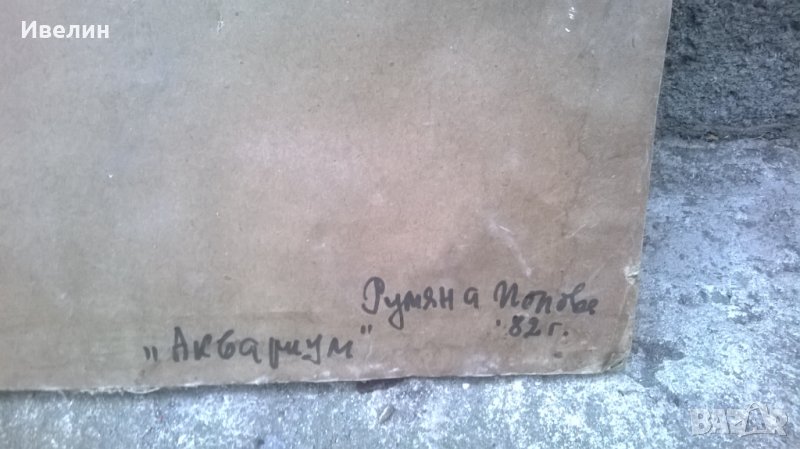 Ивелин
Румяна Попова
'82г.
„Аквариум"
BAZAR